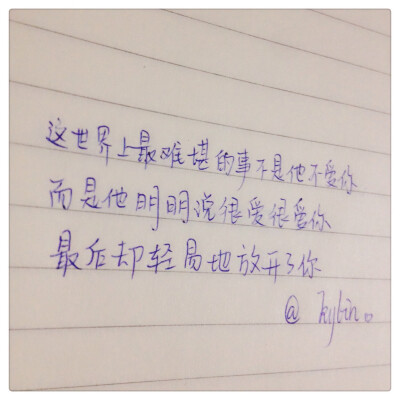 这世界上最难堪的事不是他不爱你
而是他明明说很爱很爱你
最后却轻易地放开了你
@ kybin。